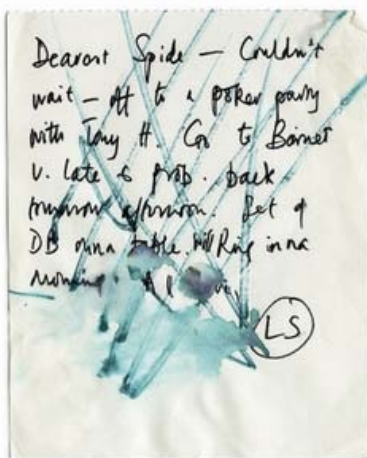 Dearest Spide — Couldn't
wait — off to a poker party
with Tony H. Go to Barnet
v. late & prob. back
tomorrow afternoon. Set of
DB onna table. Will Ring in na
Morning
LS